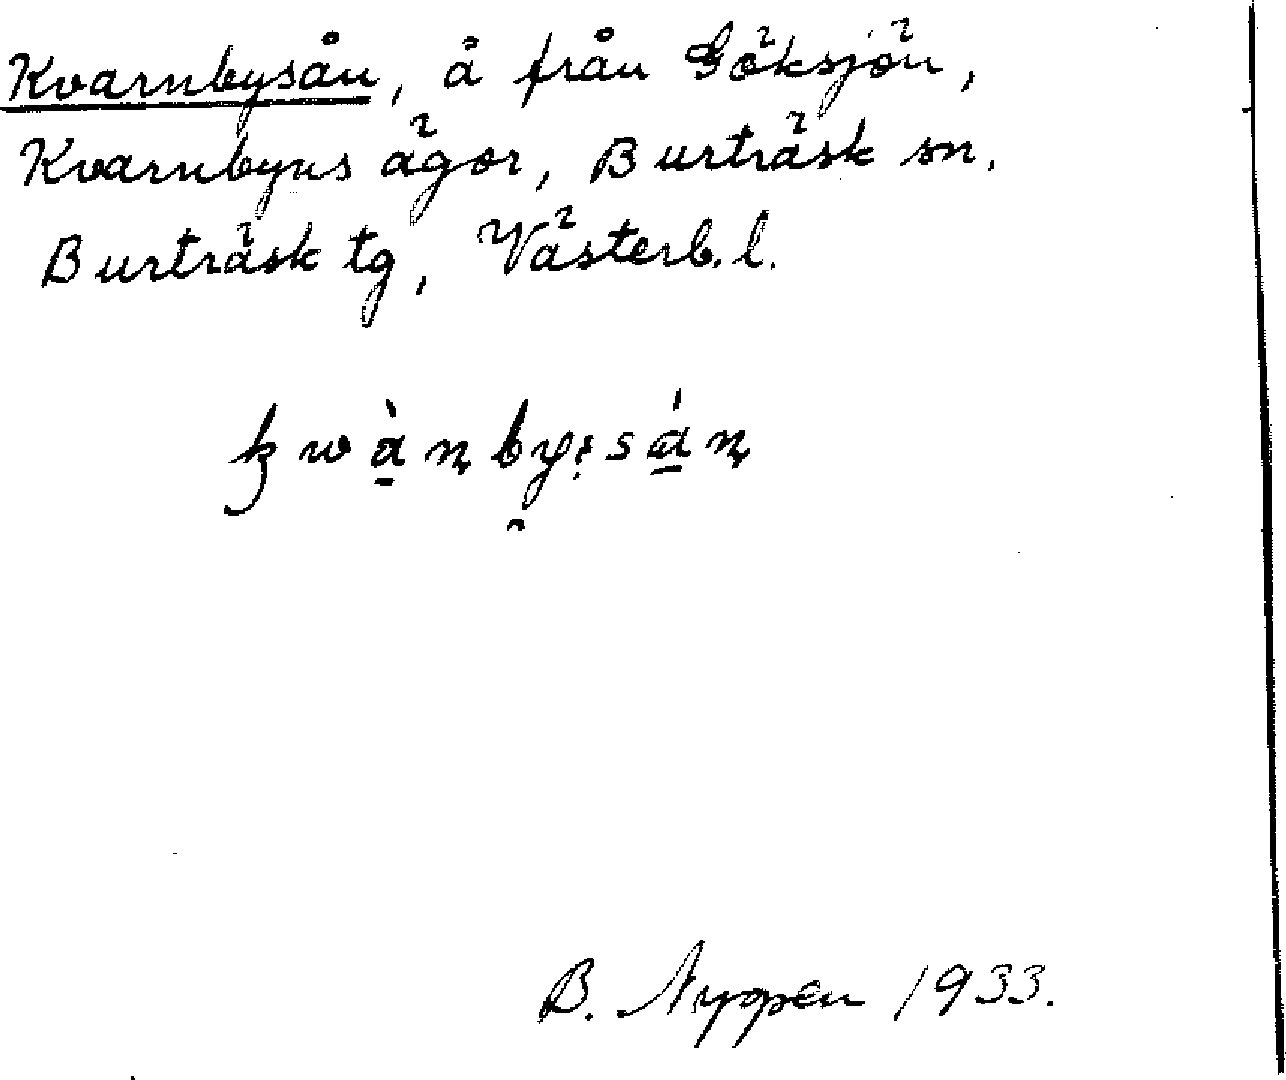 Kvarnbysån, å från Göksjön,
Kvarnbyns ägor, Burträsk sn,
Burträsk tg, Västerb. l.
B. Nyppen 1933.